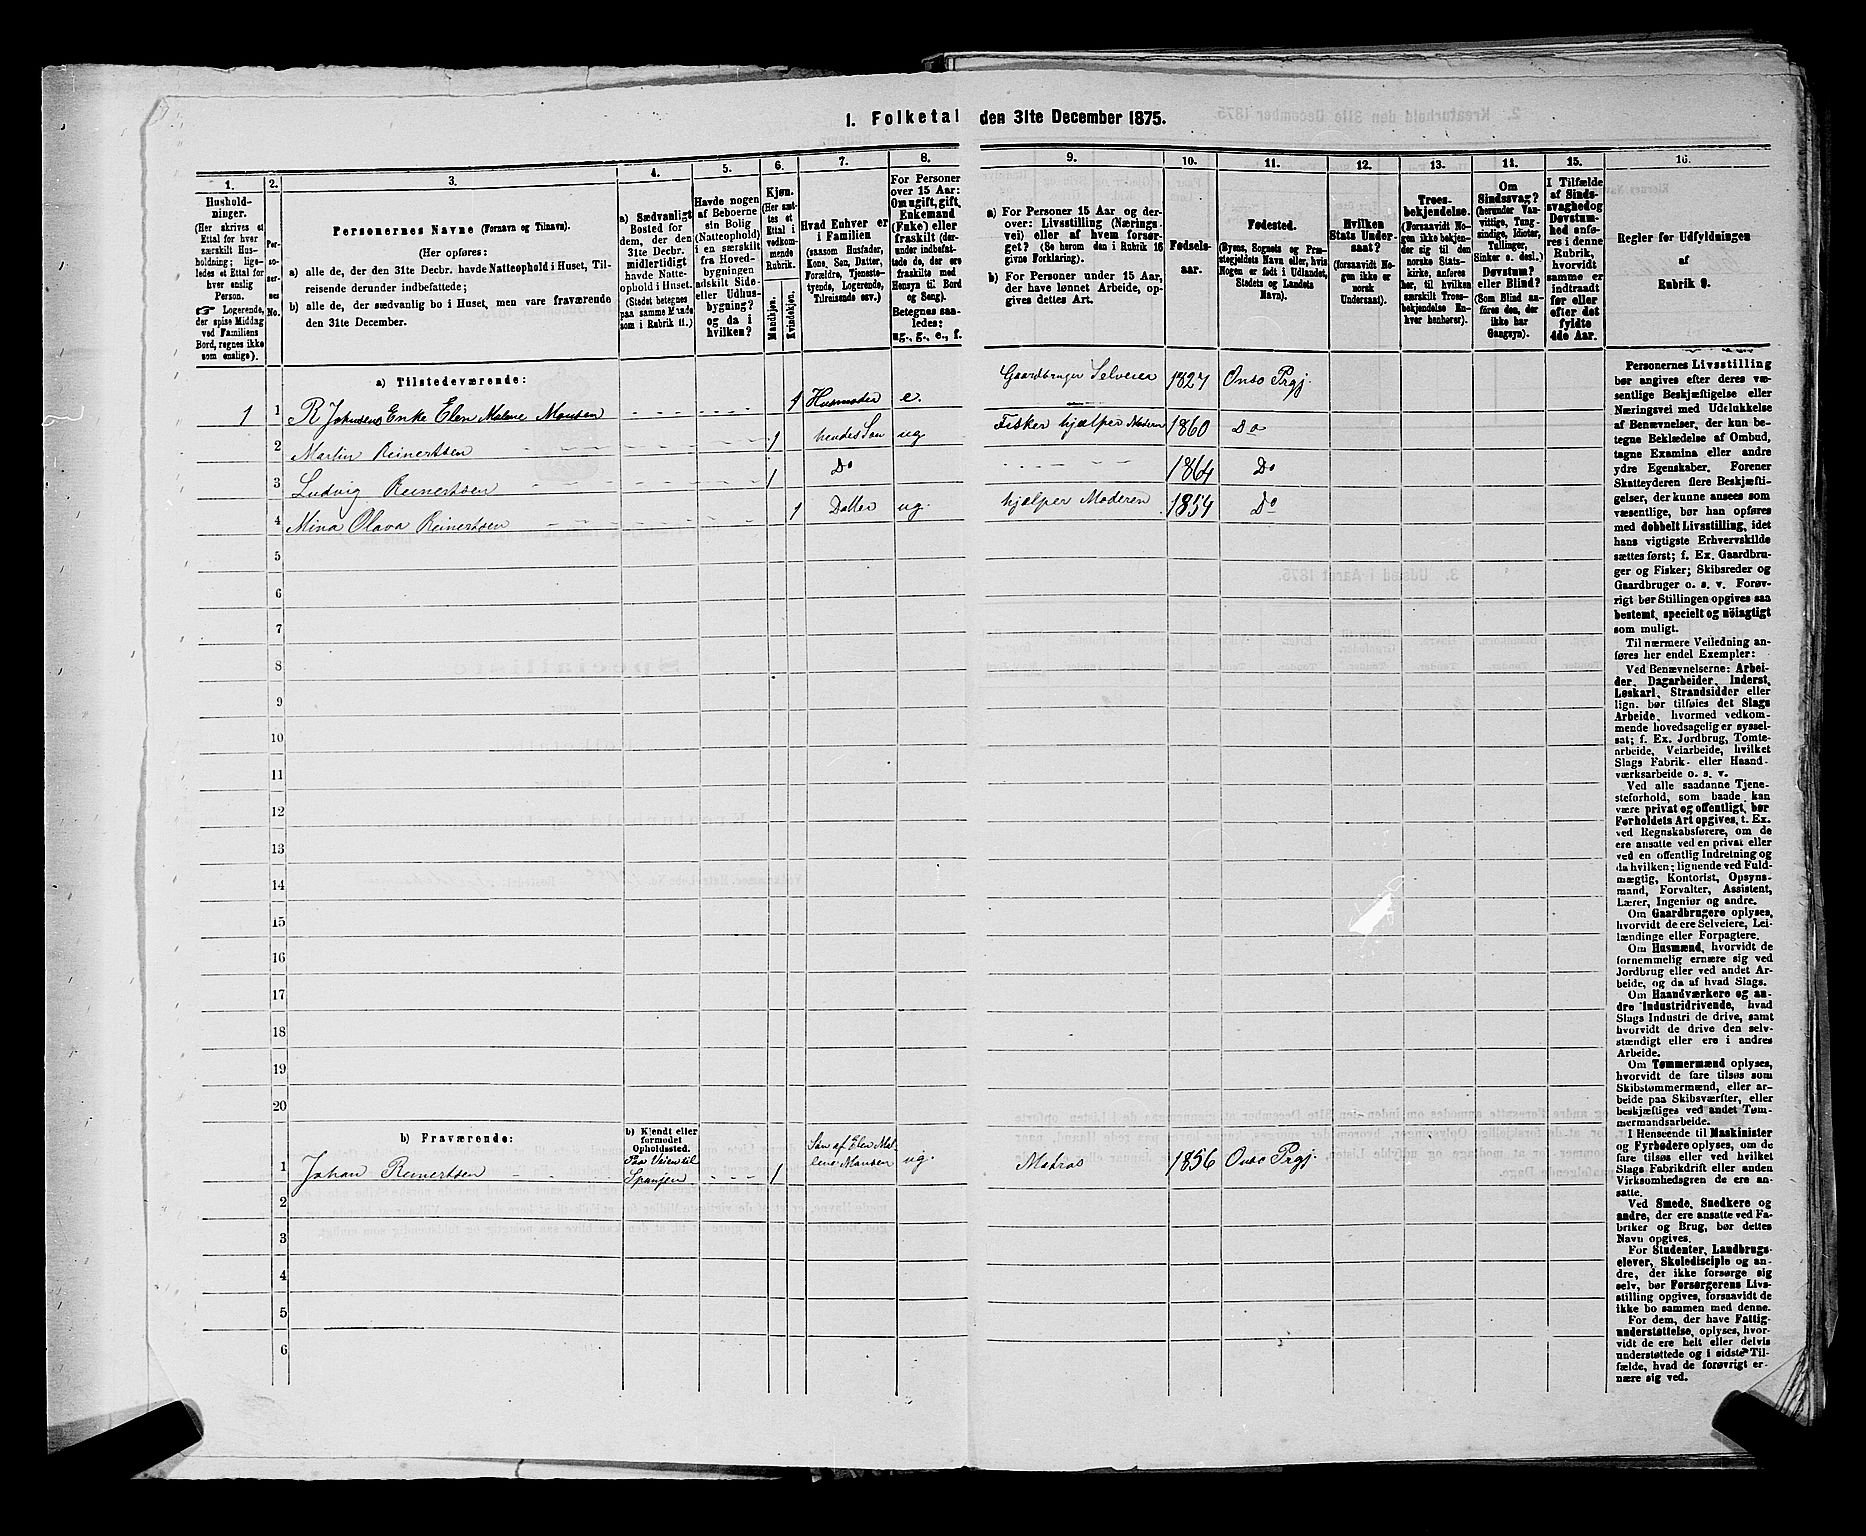 1. Folketal den 31te December 1875.
1.
Hushold-
ninger.
(Her skrives et
Ettal for hver
særskilt Hus-
holdning; lige-
ledes et Ettal for
hver enslig
Person.
☞ Logerende,
der spise Middag
ved Familiens
Bord, regnes ikke
som enslige).
2.
Per-
so-
ner-
nes
No.
3.
Personernes Navne (Fornavn og Tilnavn).
(Her opføres:
a) alle de, der den 31te Decbr. havde Natteophold i Huset, Til-
reisende derunder indbefattede;
b) alle de, der sædvanlig bo i Huset, men vare fraværende
den 31te December.
4.
a) Sædvanligt
Bosted for
dem, der den
31te Decbr.
midlertidigt
havde Natte-
ophold i Huset.
(Stedet betegnes
paa samme Maade
som i Rubrik 11.)
5.
Havde nogen
af Beboerne
sin Bolig
(Natteophold)
i en særskilt
fra Hoved-
bygningen
adskilt Side-
eller Udhus-
bygning?
og da i
hvilken?
6.
Kjøn.
(Her sæt-
tes et
Ettal i
vedkom-
mende
Rubrik.
Mandkjøn.
Kvindekjøn.
7.
Hvad Enhver er
i Familien
(saasom Husfader,
Kone, Søn, Datter,
Forældre, Tjeneste-
tyende, Logerende,
Tilreisende osv.)
8.
For Personer
over 15 Aar:
Om ugift, gift,
Enkemand
(Enke) eller
fraskilt (der-
under indbefat-
tede de, der ere
fraskilte med
Hensyn til Bord
og Seng).
Betegnes saa-
ledes:
ug., g., e., f.
9.
a) For Personer 15 Aar og der-
over: Livsstilling (Nærings-
vei) eller af hvem forsør-
get? (Se herom den i Rubrik 16
givne Forklaring).
b) For Personer under 15 Aar,
der have lønnet Arbeide, op-
gives dettes Art.
10.
Fødsels-
aar.
11.
Fødested.
(Byens, Sognets og Præ-
stegjeldets Navn eller, hvis
Nogen er født i Udlandet,
Stedets og Landets
Navn).
12.
Hvilken
Stats Under-
saat?
(forsaavidt No-
gen ikke er
norsk
Undersaat).
13.
Troes-
bekjendelse.
(Forsaavidt No-
gen ikke bekjen-
der sig til den
norske Stats-
kirke, anføres
her, til hvilken
særskilt Troes-
bekjendelse En-
hver henhører).
14.
Om
Sindssvag?
(herunder Van-
vittige, Tung-
sindige, Idioter,
Tullinger,
Sinker o. desl.)
Døvstum?
eller Blind?
(Som Blind an-
føres den, der
ikke har
Gangsyn).
15.
I Tilfælde
af Sinds-
svaghed og
Døvstum-
hed anfø-
res i denne
Rubrik,
hvorvidt
samme er
indtraadt
før eller
efter det
fyldte
4de Aar.
16.
Regler for Udfyldningen
af
Rubrik 9.
a) Tilstedeværende:
1 1 R Johnsens Enke Elen Malene Monsen 1 Husmoder e. Gaardbruger Selveier 1827 Onsø Prgj.
2 Martin Reinertsen 1 hendes Søn ug. Fisker hjælper Moderen 1860 Do
3 Ludvig Reinertsen 1 Do 1864 Do
4 Mina Olava Reinertsen 1 Datter ug. hjælper Moderen 1854 Do
5
6
7
8
9
10
11
12
13
14
15
16
17
18
19
20
b) Fraværende:
b) Kjendt eller
formodet
Opholdssted.
1 Johan Reinertsen Paa Veien til
Spanjen 1 Søn af Elen Ma-
lene Monsen ug. Matros 1856 Onsø Prgj.
2
3
4
5
6
Personernes Livsstilling
bør angives efter deres væ-
sentlige Beskjæftigelse eller
Næringsvei med Udelukkelse
af Benævnelser, der kun be-
tegne Beklædelse af Ombud,
tagne Examina eller andre
ydre Egenskaber. Forener
Skatteyderen flere Beskjæfti-
gelser, der kunne ansees som
væsentlige, bør han opføres
med dobbelt Livsstilling, idet
hans vigtigste Erhvervskilde
sættes først; f. Ex. Gaardbru-
ger og Fisker; Skibsreder og
Gaardbruger o. s. v. Forøv-
rigt bør Stillingen opgives saa
bestemt, specielt og nöiagtigt
som muligt.
Til nærmere Veiledning an-
føres her endel Exempler:
Ved Benævnelserne: Arbei-
der, Dagarbeider, Inderst,
Løskarl, Strandsidder eller
lign. bør tilføies det Slags
Arbeide, hvormed vedkom-
mende hovedsagelig er syssel-
sat; f. Ex. Jordbrug, Tomte-
arbeide, Veiarbeide, hvilket
Slags Fabrik- eller Haand-
værksarbeide o. s. v.
Ved alle saadanne Tjene-
steforhold, som baade kan
være privat og offentligt, bør
Forholdets Art opgives, t. Ex.
ved Regnskabsførere, om de
ere ansatte ved en privat eller
ved en offentlig Indretning og
da hvilken; lignende ved Fuld-
mægtig, Kontorist, Opsyns-
mand, Forvalter, Assistent,
Lærer, Ingeniør og andre.
Om Gaardbrugere oplyses,
hvorvidt de ere Selveiere, Lei-
lændinge eller Forpagtere.
Om Husmænd, hvorvidt de
fornemmelig ernære sig ved
Jordbrug eller ved andet Ar-
beide, og da af hvad Slags.
Om Haandværkere og an-
dre Industridrivende, hvad
Slags Industri de drive, samt
hvorvidt de drive den selv-
stændigt eller ere i andres
Arbeide.
Om Tømmermænd oplyses,
hvorvidt de fare tilsøs som
Skibstømmermænd, eller ar-
beide paa Skibsværfter, eller
beskjæftiges ved andet Tøm-
mermandsarbeide.
I Henseende til Maskinister
og Fyrbødere oplyses, om de
fare tilsøs eller ved hvilket
Slags Fabrikdrift eller anden
Virksomhedsgren de ere an-
satte.
Ved Smede, Snedkere og
andre, der ere ansatte ved Fa-
briker og Brug, bør dettes
Navn opgives.
For Studenter, Landbrugs-
elever, Skoledisciple og an-
dre, der ikke forsørge sig
selv, bør Forsørgerens Livs-
stilling opgives, forsaavidt de
ikke bo sammen med denne.
For dem, der have Fattig-
understøttelse, oplyses, hvor-
vidt de ere helt eller delvis
understøttede og i sidste Til-
fælde, hvad de forøvrigt er-
nære sig ved.